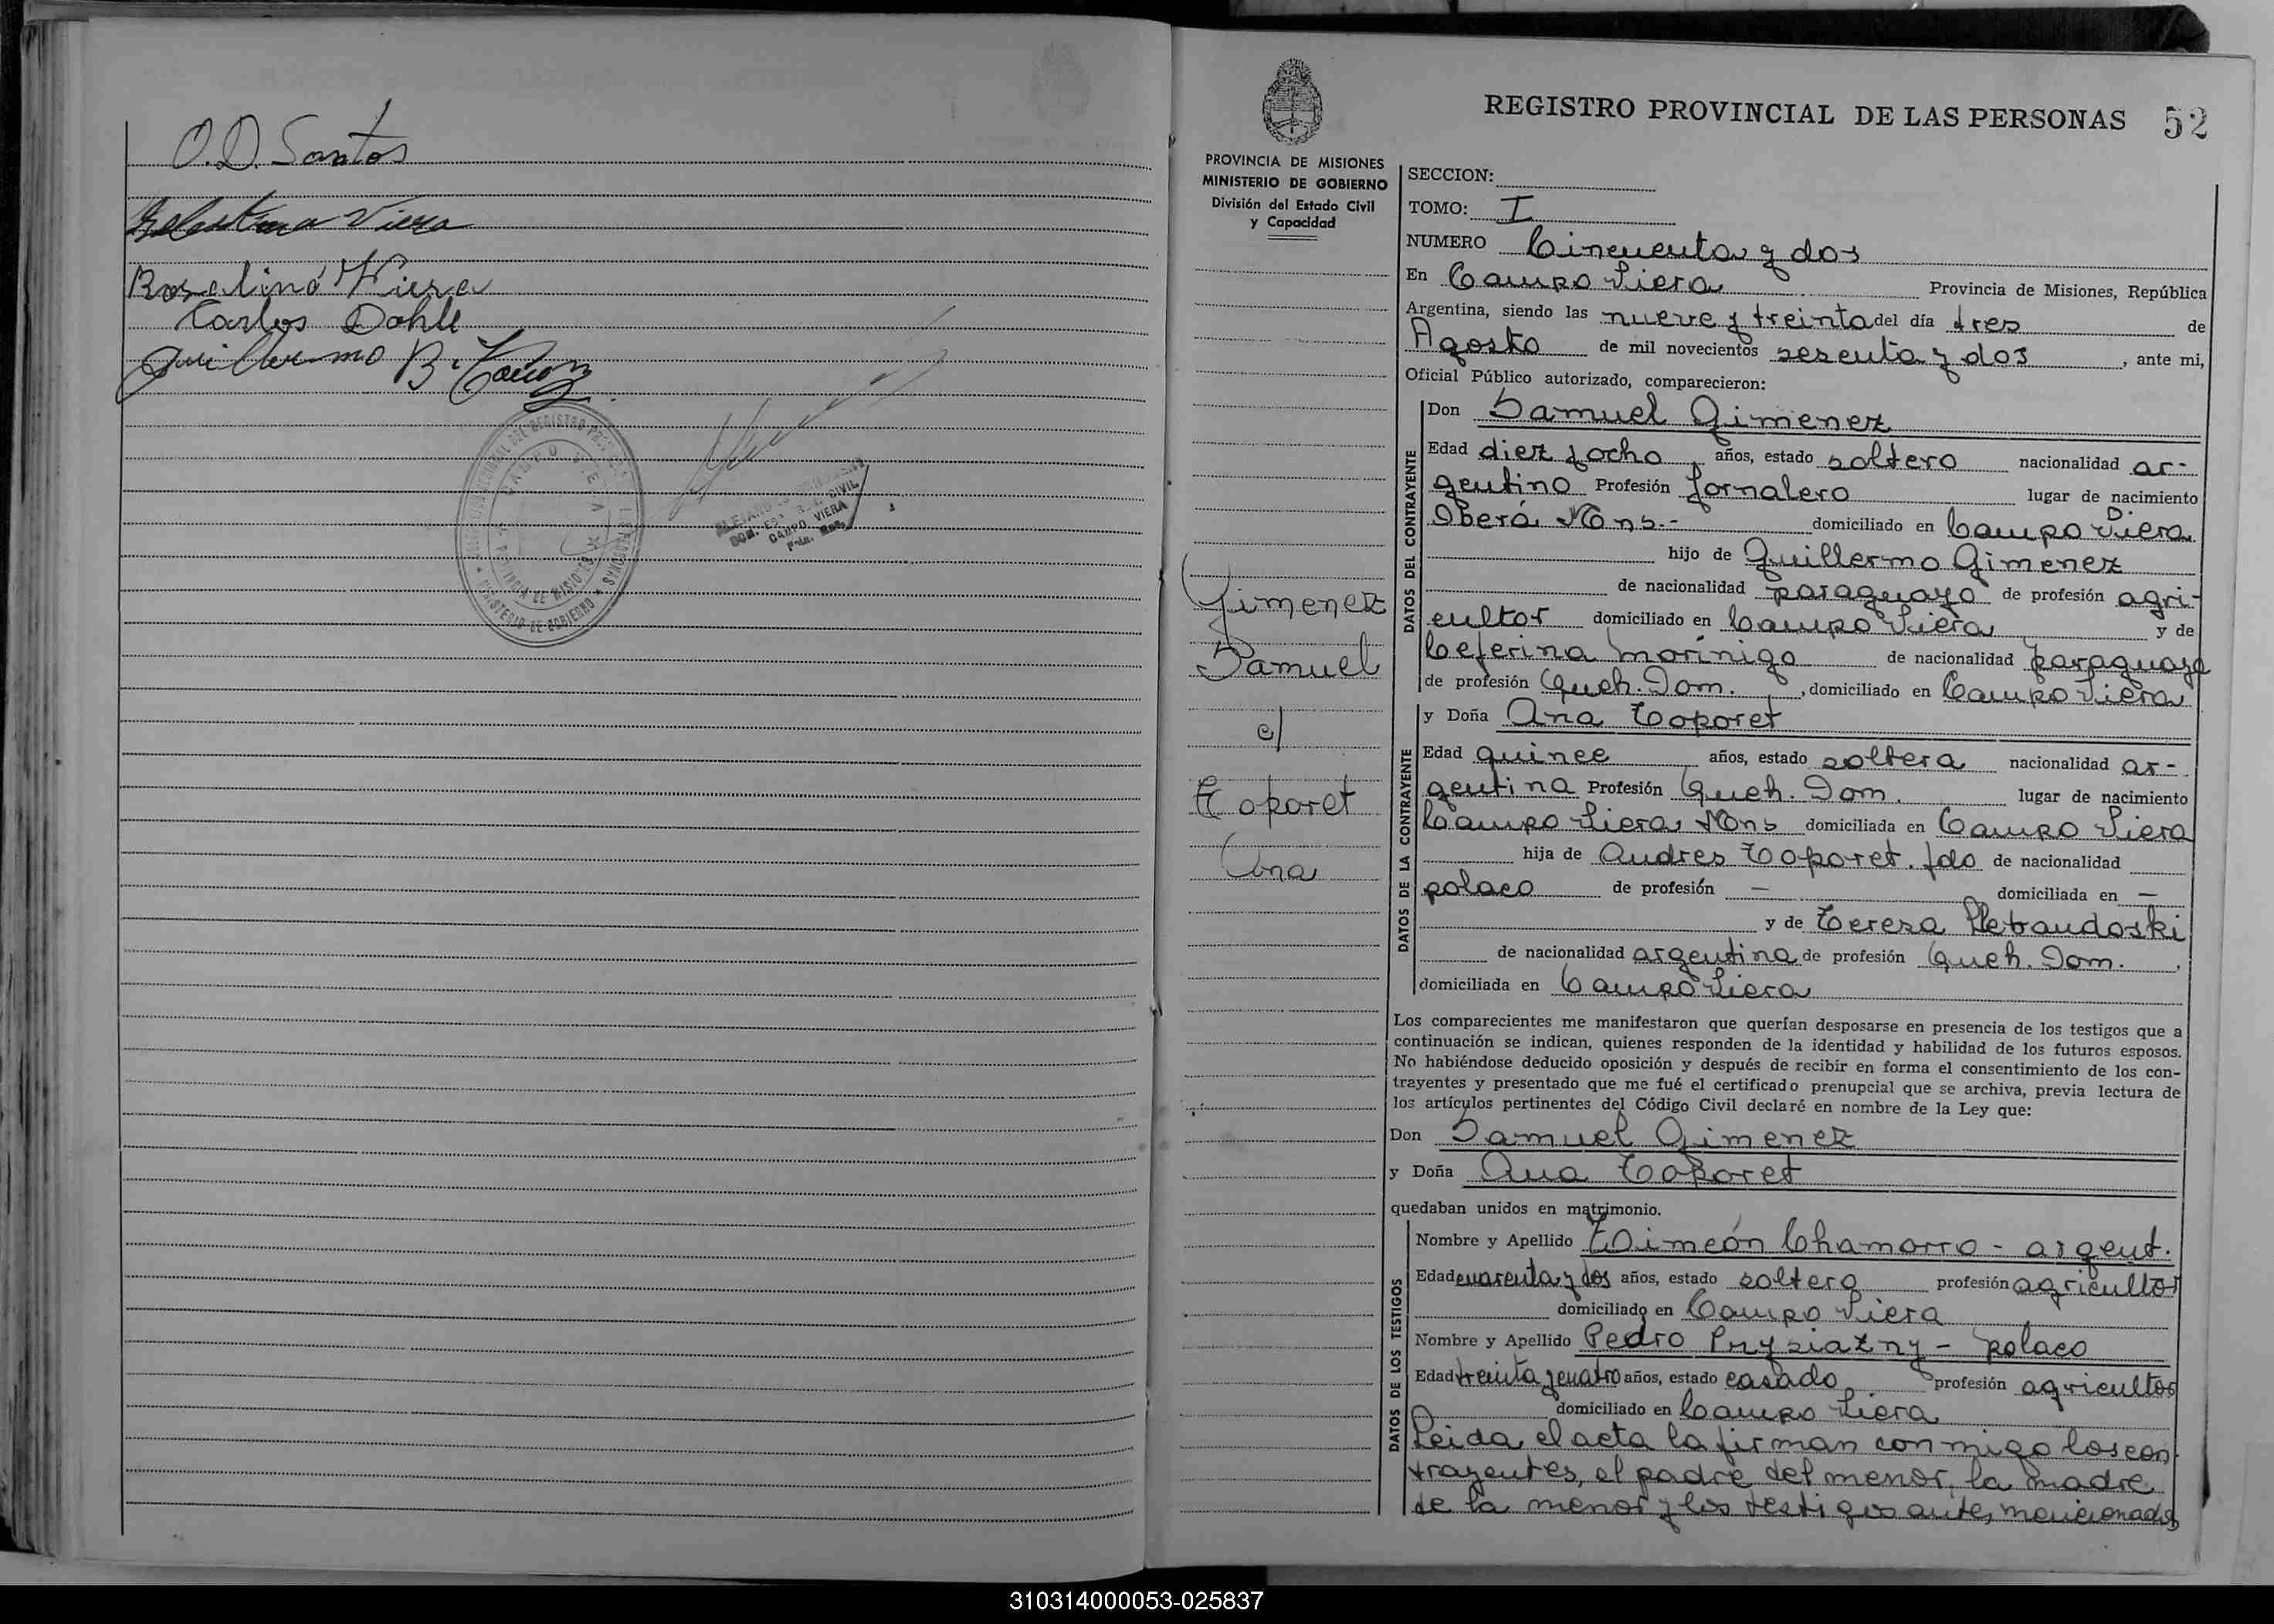 O.D. Santos
Viera
Rosalino Viera
Carlos Dohle
Guillermo B.
CAMPO VIERA
MINISTERIO DE GOBIERNO
CIVIL
CAMPO VIERA
REGISTRO PROVINCIAL DE LAS PERSONAS 52
PROVINCIA DE MISIONES
MINISTERIO DE GOBIERNO
División del Estado Civil
y Capacidad
Gimenez
Samuel
c/
Toporet
Ana
SECCION:
TOMO: I
NUMERO Cincuenta y dos
En Campo Viera Provincia de Misiones, República
Argentina, siendo las nueve y treinta del día tres de
Agosto de mil novecientos sesenta y dos, ante mi,
Oficial Público autorizado, comparecieron:
DATOS DEL CONTRAYENTE
Don Samuel Gimenez
Edad diez y ocho años, estado soltero nacionalidad ar-
gentino Profesión Jornalero lugar de nacimiento
Oberá Mns.- domiciliado en Campo Viera
hijo de Guillermo Gimenez
de nacionalidad paraguayo de profesión agri-
cultor domiciliado en Campo Viera y de
Ceferina Morínigo de nacionalidad paraguaya
de profesión Queh. Dom., domiciliado en Campo Viera
DATOS DE LA CONTRAYENTE
y Doña Ana Toporet
Edad quince años, estado soltera nacionalidad ar-
gentina Profesión Queh. Dom. lugar de nacimiento
Campo Viera Mns domiciliada en Campo Viera
hija de Andres Toporet. fdo de nacionalidad
polaco de profesión — domiciliada en —
y de Teresa
de nacionalidad argentina de profesión Queh. Dom.,
domiciliada en Campo Viera
Los comparecientes me manifestaron que querían desposarse en presencia de los testigos que a
continuación se indican, quienes responden de la identidad y habilidad de los futuros esposos.
No habiéndose deducido oposición y después de recibir en forma el consentimiento de los con-
trayentes y presentado que me fué el certificado prenupcial que se archiva, previa lectura de
los artículos pertinentes del Código Civil declaré en nombre de la Ley que:
Don Samuel Gimenez
y Doña Ana Toporet
quedaban unidos en matrimonio.
DATOS DE LOS TESTIGOS
Nombre y Apellido Chamorro - argent.
Edad cuarenta y dos años, estado soltero profesión agricultor
domiciliado en Campo Viera
Nombre y Apellido Pedro Prysiazny - polaco
Edad treinta y cuatro años, estado casado profesión agricultor
domiciliado en Campo Viera
Leida el acta la firman con migo los con
trayentes, el padre del menor, la madre
de la menor y los testigos antes mencionados
310314000053-025837